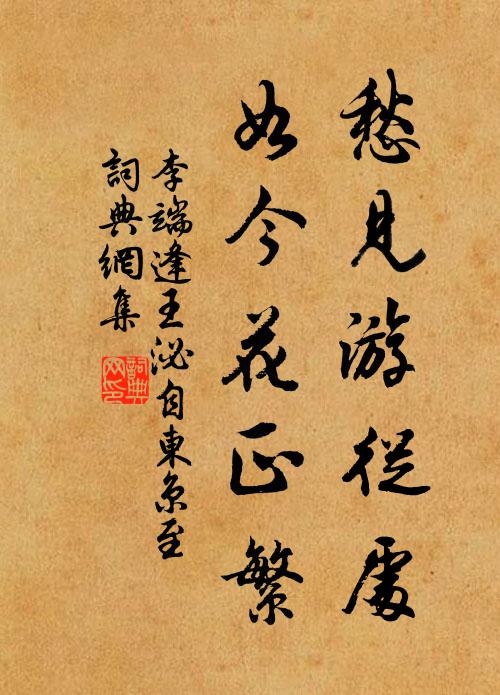 愁見游從處
如今花正繁
李端逢王泌自東京至
詞典網集
詞典
网印